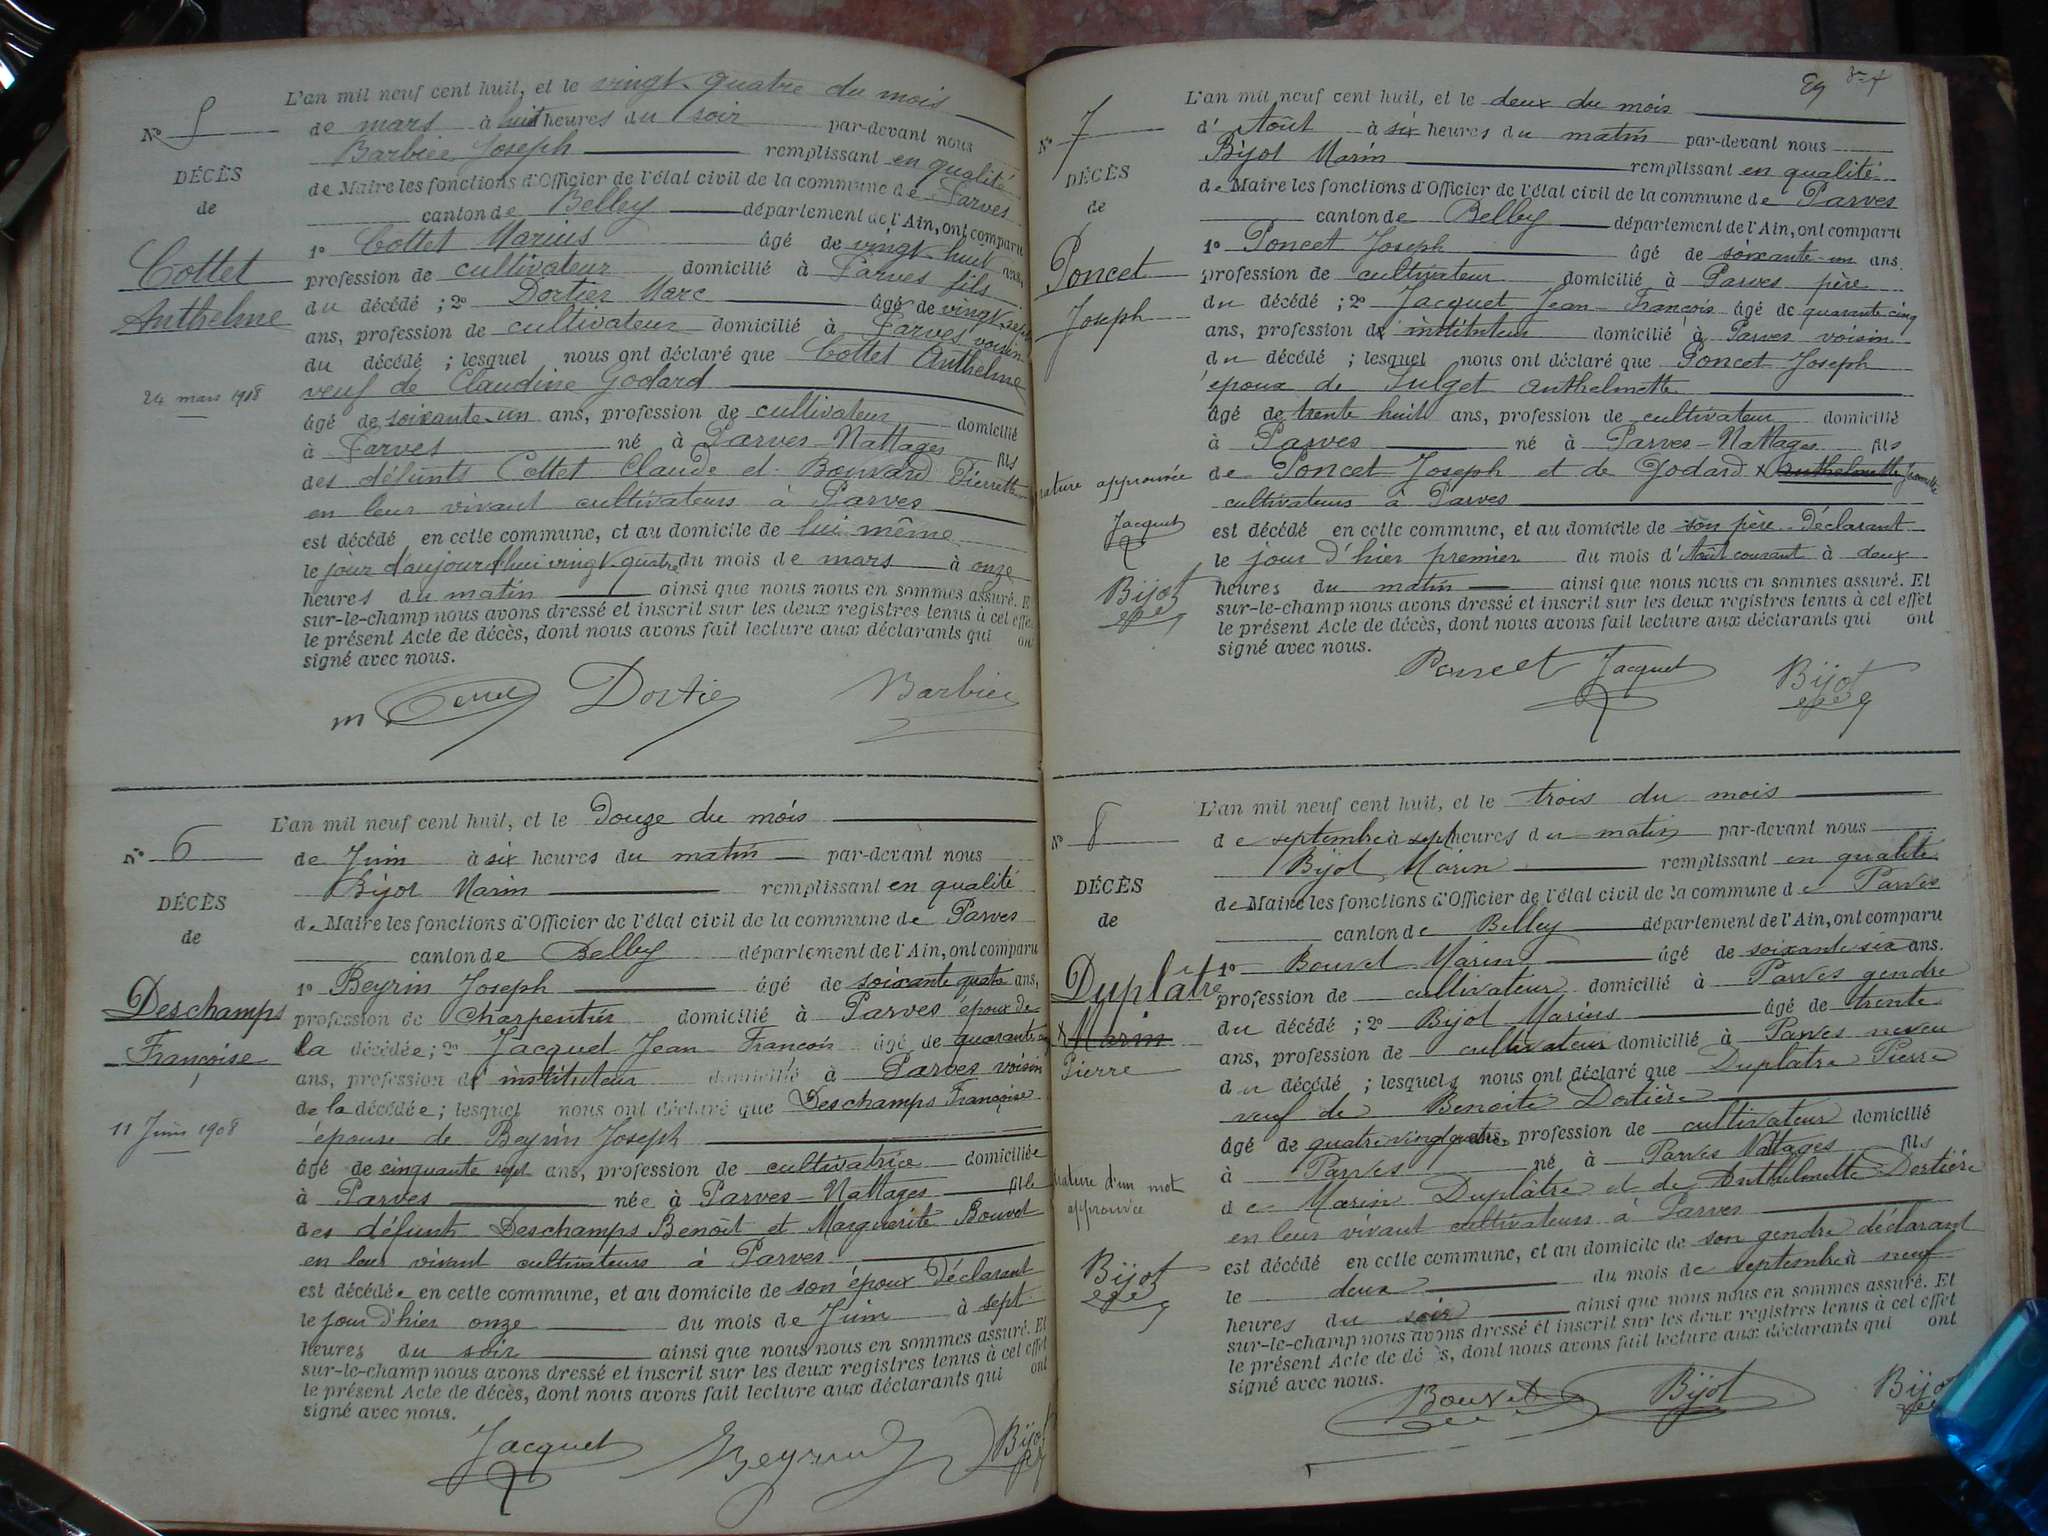 L'an mil neuf cent huit, et le vingt quatre du mois
N° 5
de mars à huit heures du soir par-devant nous
Barbier Joseph remplissant en qualité
DÉCÈS
de Maire les fonctions d'Officier de l'état civil de la commune de Parves
de
canton de Belley département de l'Ain, ont comparu
1° Cottet Marius âgé de vingt huit ans,
Cottet
profession de cultivateur domicilié à Parves fils
Anthelme
du décédé ; 2° Dortier Marc âgé de vingt sept
ans, profession de cultivateur domicilié à Parves voisin
du décédé ; lesquel nous ont déclaré que Cottet Anthelme
veuf de Claudine Godard
24 mars 1908
âgé de soixante un ans, profession de cultivateur domicilié
à Parves né à Parves-Nattages fils
des défunts Cottet Claude et Bouvard Pierrette
en leur vivant cultivateurs à Parves
est décédé en cette commune, et au domicile de lui même
le jour d'aujourd'hui vingt quatre du mois de mars à onze
heures du matin ainsi que nous nous en sommes assuré. Et
sur-le-champ nous avons dressé et inscrit sur les deux registres tenus à cet effet
le présent Acte de décès, dont nous avons fait lecture aux déclarants qui ont
signé avec nous.
Dortier Barbier
L'an mil neuf cent huit, et le Douze du mois
N° 6
de Juin à six heures du matin par-devant nous
Bijot Marin remplissant en qualité
DÉCÈS
de Maire les fonctions d'Officier de l'état civil de la commune de Parves
de
canton de Belley département de l'Ain, ont comparu
1° Beyrin Joseph âgé de soixante quatre ans,
Deschamps
profession de Charpentier domicilié à Parves époux de
Françoise
la décédée ; 2° Jacquet Jean François âgé de quarante cinq
ans, profession d'instituteur domicilié à Parves voisin
de la décédée ; lesquel nous ont déclaré que Deschamps Françoise
11 Juin 1908
épouse de Beyrin Joseph
âgé de cinquante sept ans, profession de cultivatrice domiciliée
à Parves née à Parves-Nattages fille
des défunts Deschamps Benoît et Marguerite Bouvet
en leur vivant cultivateurs à Parves
est décédée en cette commune, et au domicile de son époux Déclarant
le jour d'hier onze du mois de Juin à sept
heures du soir ainsi que nous nous en sommes assuré. Et
sur-le-champ nous avons dressé et inscrit sur les deux registres tenus à cet effet
le présent Acte de décès, dont nous avons fait lecture aux déclarants qui ont
signé avec nous.
Jacquet Beyrin Bijot
L'an mil neuf cent huit, et le deux du mois
N° 7
d'Août à six heures du matin par-devant nous
Bijot Marin remplissant en qualité
DÉCÈS
de Maire les fonctions d'Officier de l'état civil de la commune de Parves
de
canton de Belley département de l'Ain, ont comparu
1° Poncet Joseph âgé de soixante un ans.
Poncet
profession de cultivateur domicilié à Parves père
Joseph
du décédé ; 2° Jacquet Jean François âgé de quarante cinq
ans, profession d'instituteur domicilié à Parves voisin
du décédé ; lesquel nous ont déclaré que Poncet Joseph
époux de Sulget Anthelmette
âgé de trente huit ans, profession de cultivateur domicilié
à Parves né à Parves-Nattages fils
de Poncet Joseph et de Godard x Anthelmette Jeannette
rature approuvée
cultivateurs à Parves
Jacquet
est décédé en cette commune, et au domicile de son père Déclarant
le jour d'hier premier du mois d'Août courant à deux
Bijot
heures du matin ainsi que nous nous en sommes assuré. Et
sur-le-champ nous avons dressé et inscrit sur les deux registres tenus à cet effet
le présent Acte de décès, dont nous avons fait lecture aux déclarants qui ont
signé avec nous.
Poncet Jacquet Bijot
L'an mil neuf cent huit, et le trois du mois
N° 8
de septembre à sept heures du matin par-devant nous
Bijot Marin remplissant en qualité
DÉCÈS
de Maire les fonctions d'Officier de l'état civil de la commune de Parves
de
canton de Belley département de l'Ain, ont comparu
1° Bouvet Marin âgé de soixante six ans.
Duplâtre
profession de cultivateur domicilié à Parves gendre
x Marin
du décédé ; 2° Bijot Marius âgé de trente
Pierre
ans, profession de cultivateur domicilié à Parves neveu
du décédé ; lesquels nous ont déclaré que Duplatre Pierre
veuf de Benoîte Dortière
âgé de quatre vingt quatre profession de cultivateur domicilié
à Parves né à Parves Nattages fils
rature d'un mot
de Marin Duplâtre et de Anthelmette Dortière
approuvée
en leur vivant cultivateurs à Parves
Bijot
est décédé en cette commune, et au domicile de son gendre déclarant
le deux du mois de septembre à neuf
heures du soir ainsi que nous nous en sommes assuré. Et
sur-le-champ nous avons dressé et inscrit sur les deux registres tenus à cet effet
le présent Acte de décès, dont nous avons fait lecture aux déclarants qui ont
signé avec nous.
Bouvet Bijot Bijot